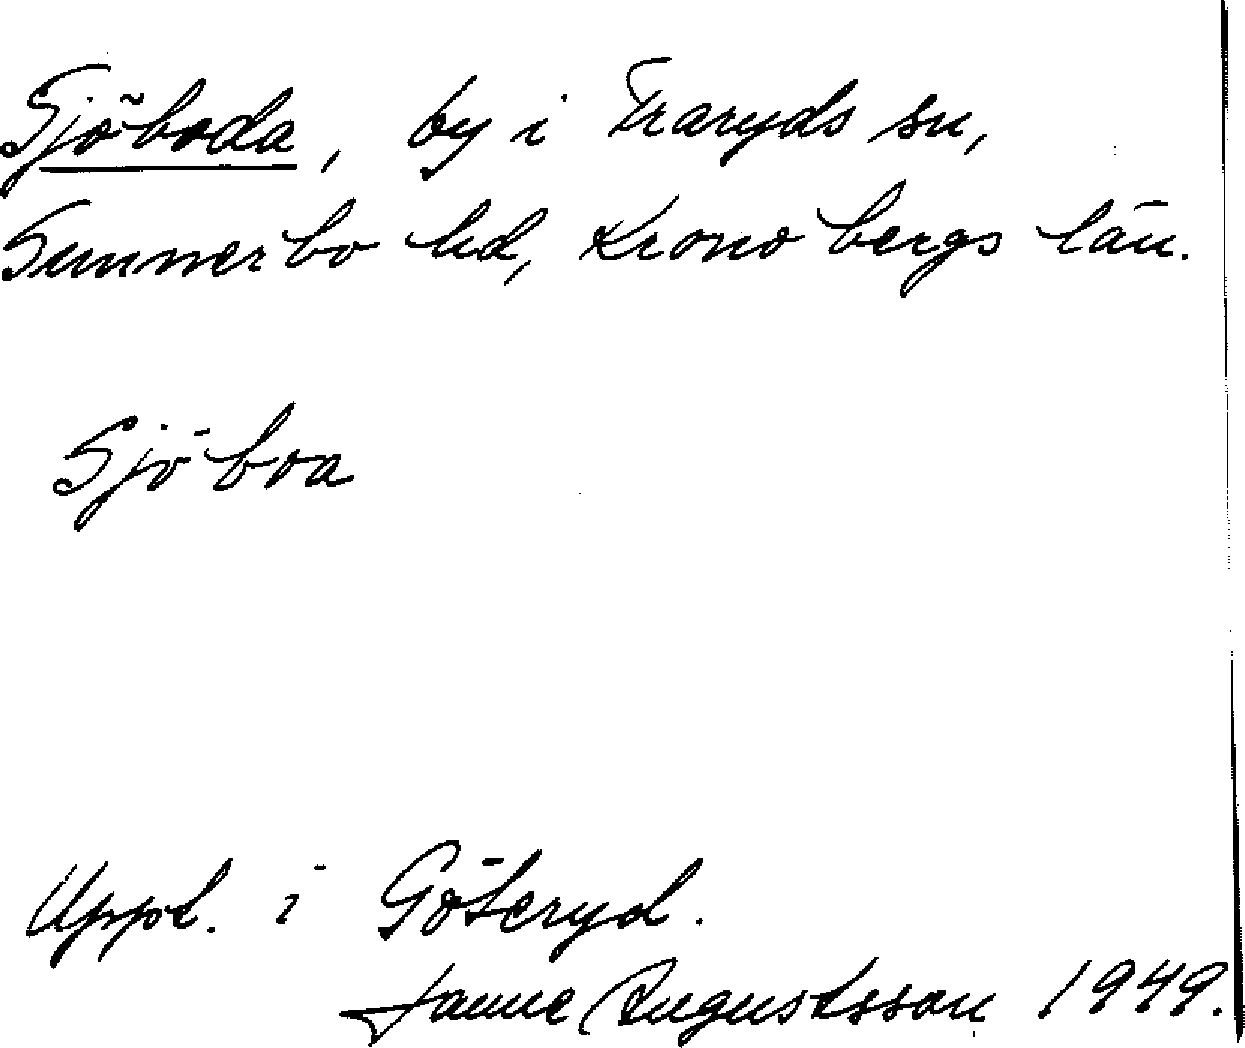 Sjöboda, by i Traryds sn,
Sunnerbo hd, Kronobergs län.
Sjöboa
Uppt. i Göteryd.
Janne Augustsson 1949.